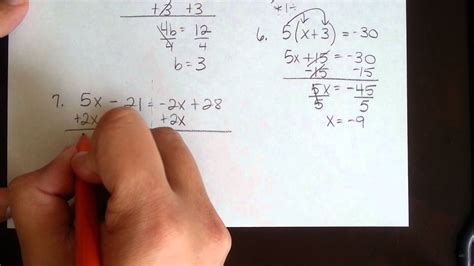 +3 +3
4b = 12
4 4
b = 3
6. 5(x+3) = -30
5x + 15 = -30
-15 -15
5x = -45
5 5
x = -9
7. 5x - 21 = -2x + 28
+2x +2x